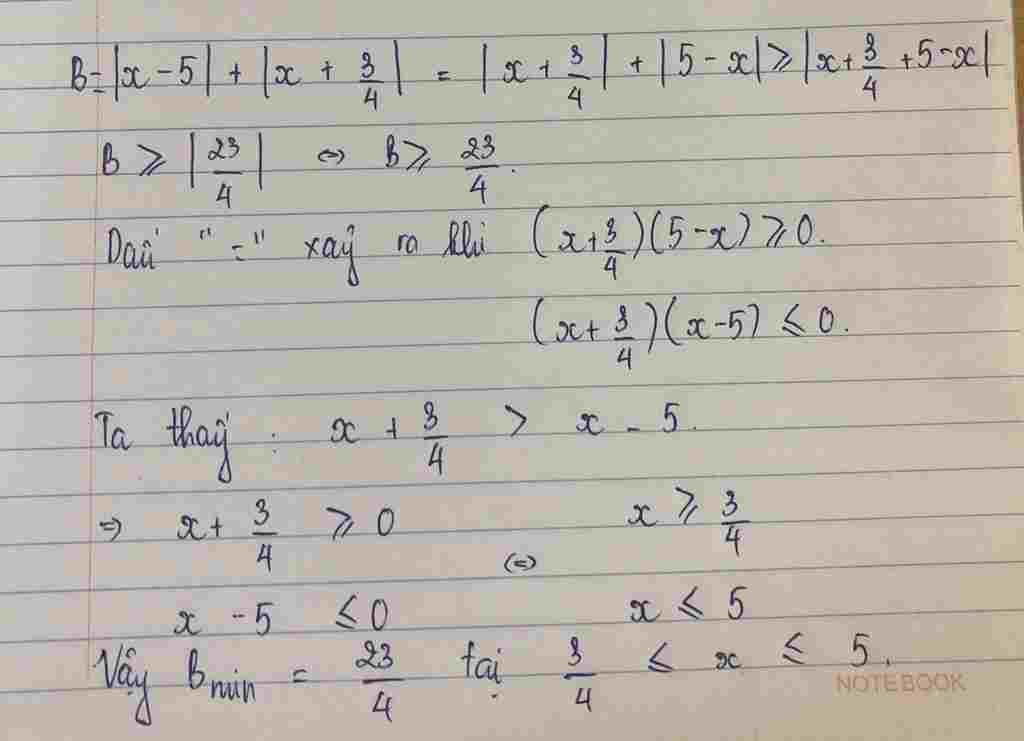 B = |x - 5| + |x + 3/4| = |x + 3/4| + |5 - x| ⩾ |x + 3/4 + 5 - x|
B ⩾ |23/4| ⇔ B ⩾ 23/4.
Dấu "=" xảy ra khi (x + 3/4)(5 - x) ⩾ 0.
(x + 3/4)(x - 5) ⩽ 0.
Ta thấy : x + 3/4 > x - 5.
⇒ x + 3/4 ⩾ 0 x ⩾ 3/4
(=)
x - 5 ⩽ 0 x ⩽ 5
Vậy Bmin = 23/4 tại 3/4 ⩽ x ⩽ 5.
NOTEBOOK